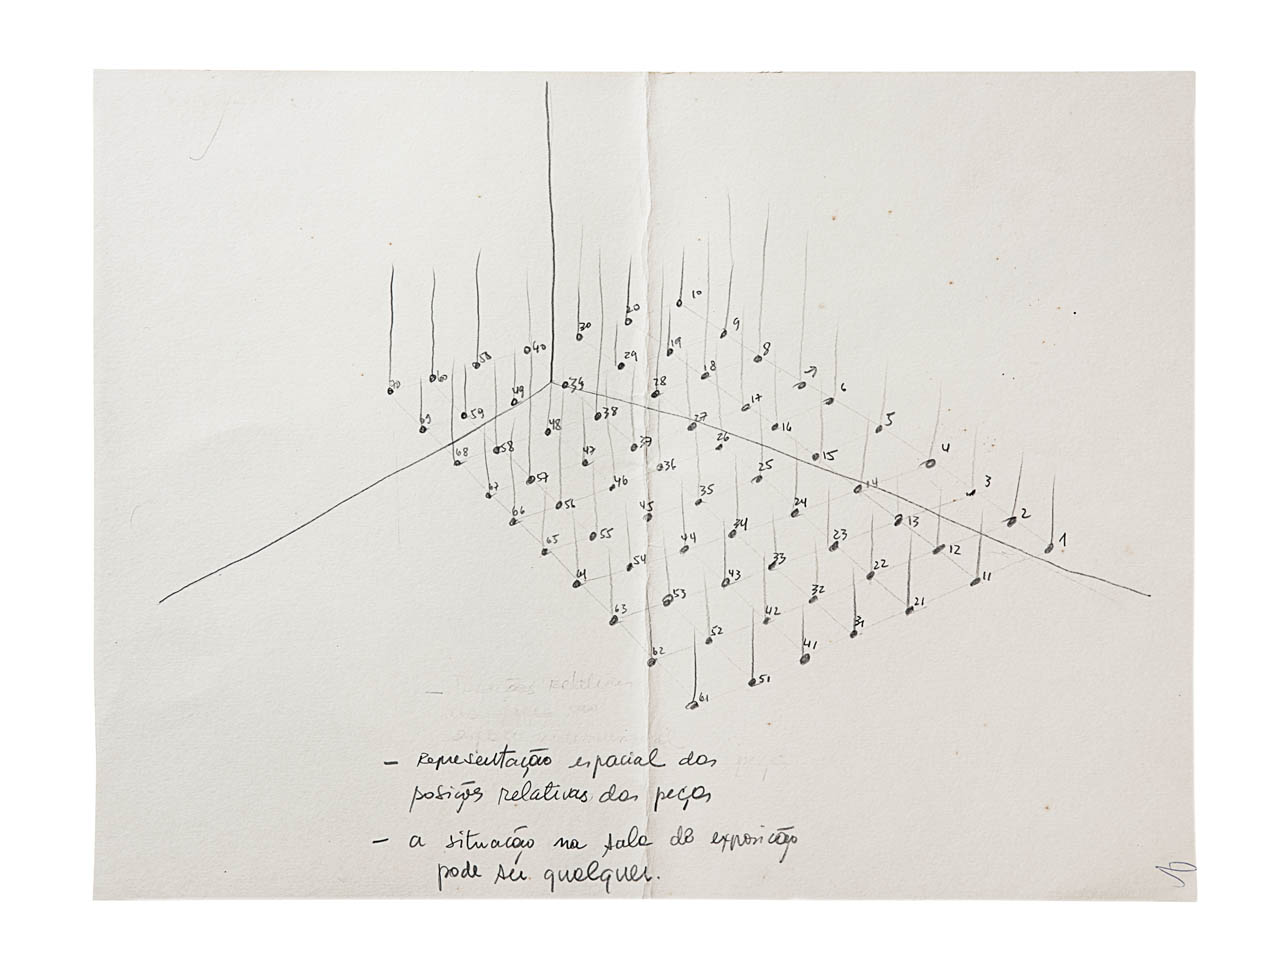 10
20
30
9
40
19
50
29
8
18
60
39
7
70
28
6
49
17
59
38
5
69
27
16
48
26
37
4
58
15
68
47
36
25
3
57
46
14
67
35
2
56
24
66
45
13
34
1
55
23
65
44
12
33
54
22
64
43
11
32
53
21
63
42
31
52
41
62
51
61
- Representação espacial das
posições relativas das peças
- a situação na sala de exposição
pode ser qualquer.